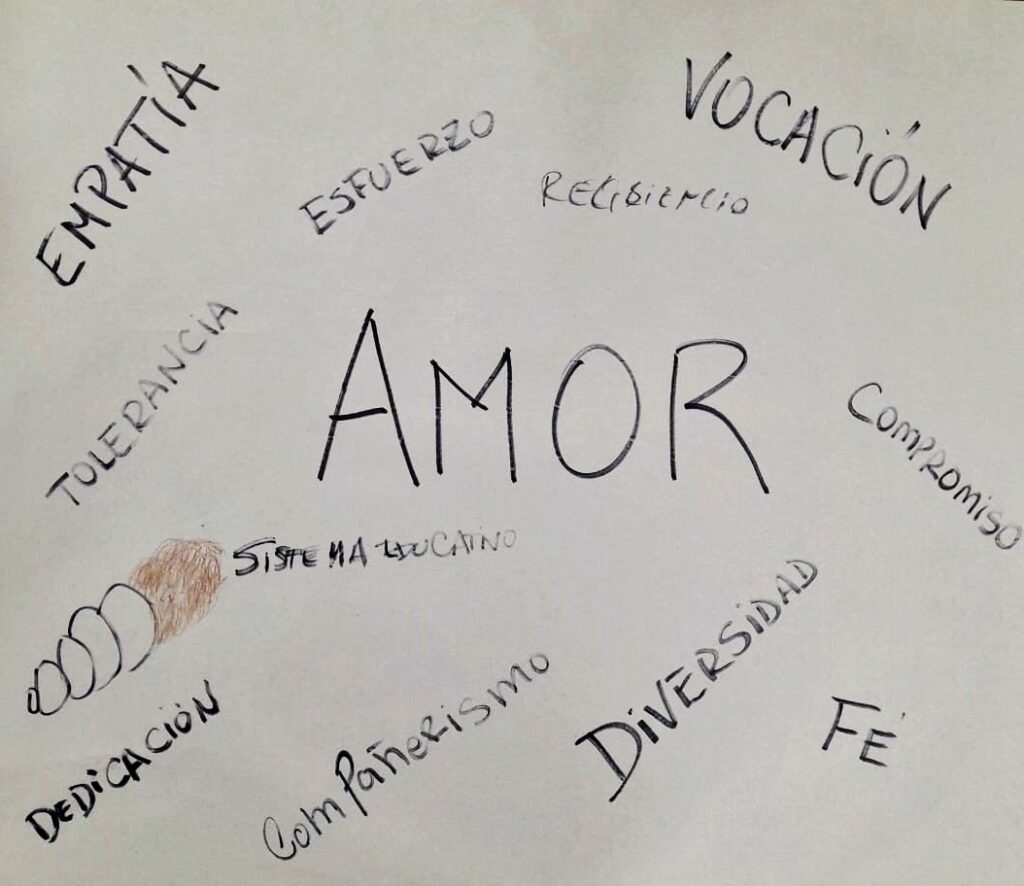 EMPATÍA
VOCACIÓN
ESFUERZO
TOLERANCIA
AMOR
COMPROMISO
SISTEMA
DIVERSIDAD
FÉ
DEDICACIÓN
COMPAÑERISMO